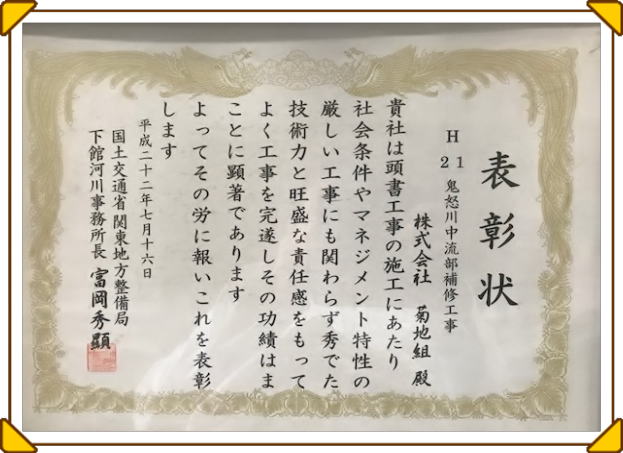 表彰状
H21 鬼怒川中流部補修工事
株式会社 菊地組 殿
貴社は頭書工事の施工にあたり
社会条件やマネジメント特性の
厳しい工事にも関わらず秀でた
技術力と旺盛な責任感をもって
よく工事を完遂しその功績はま
ことに顕著であります
よってその労に報いこれを表彰
します
平成二十二年七月十六日
国土交通省関東地方整備局
下館河川事務所長 富岡秀顕